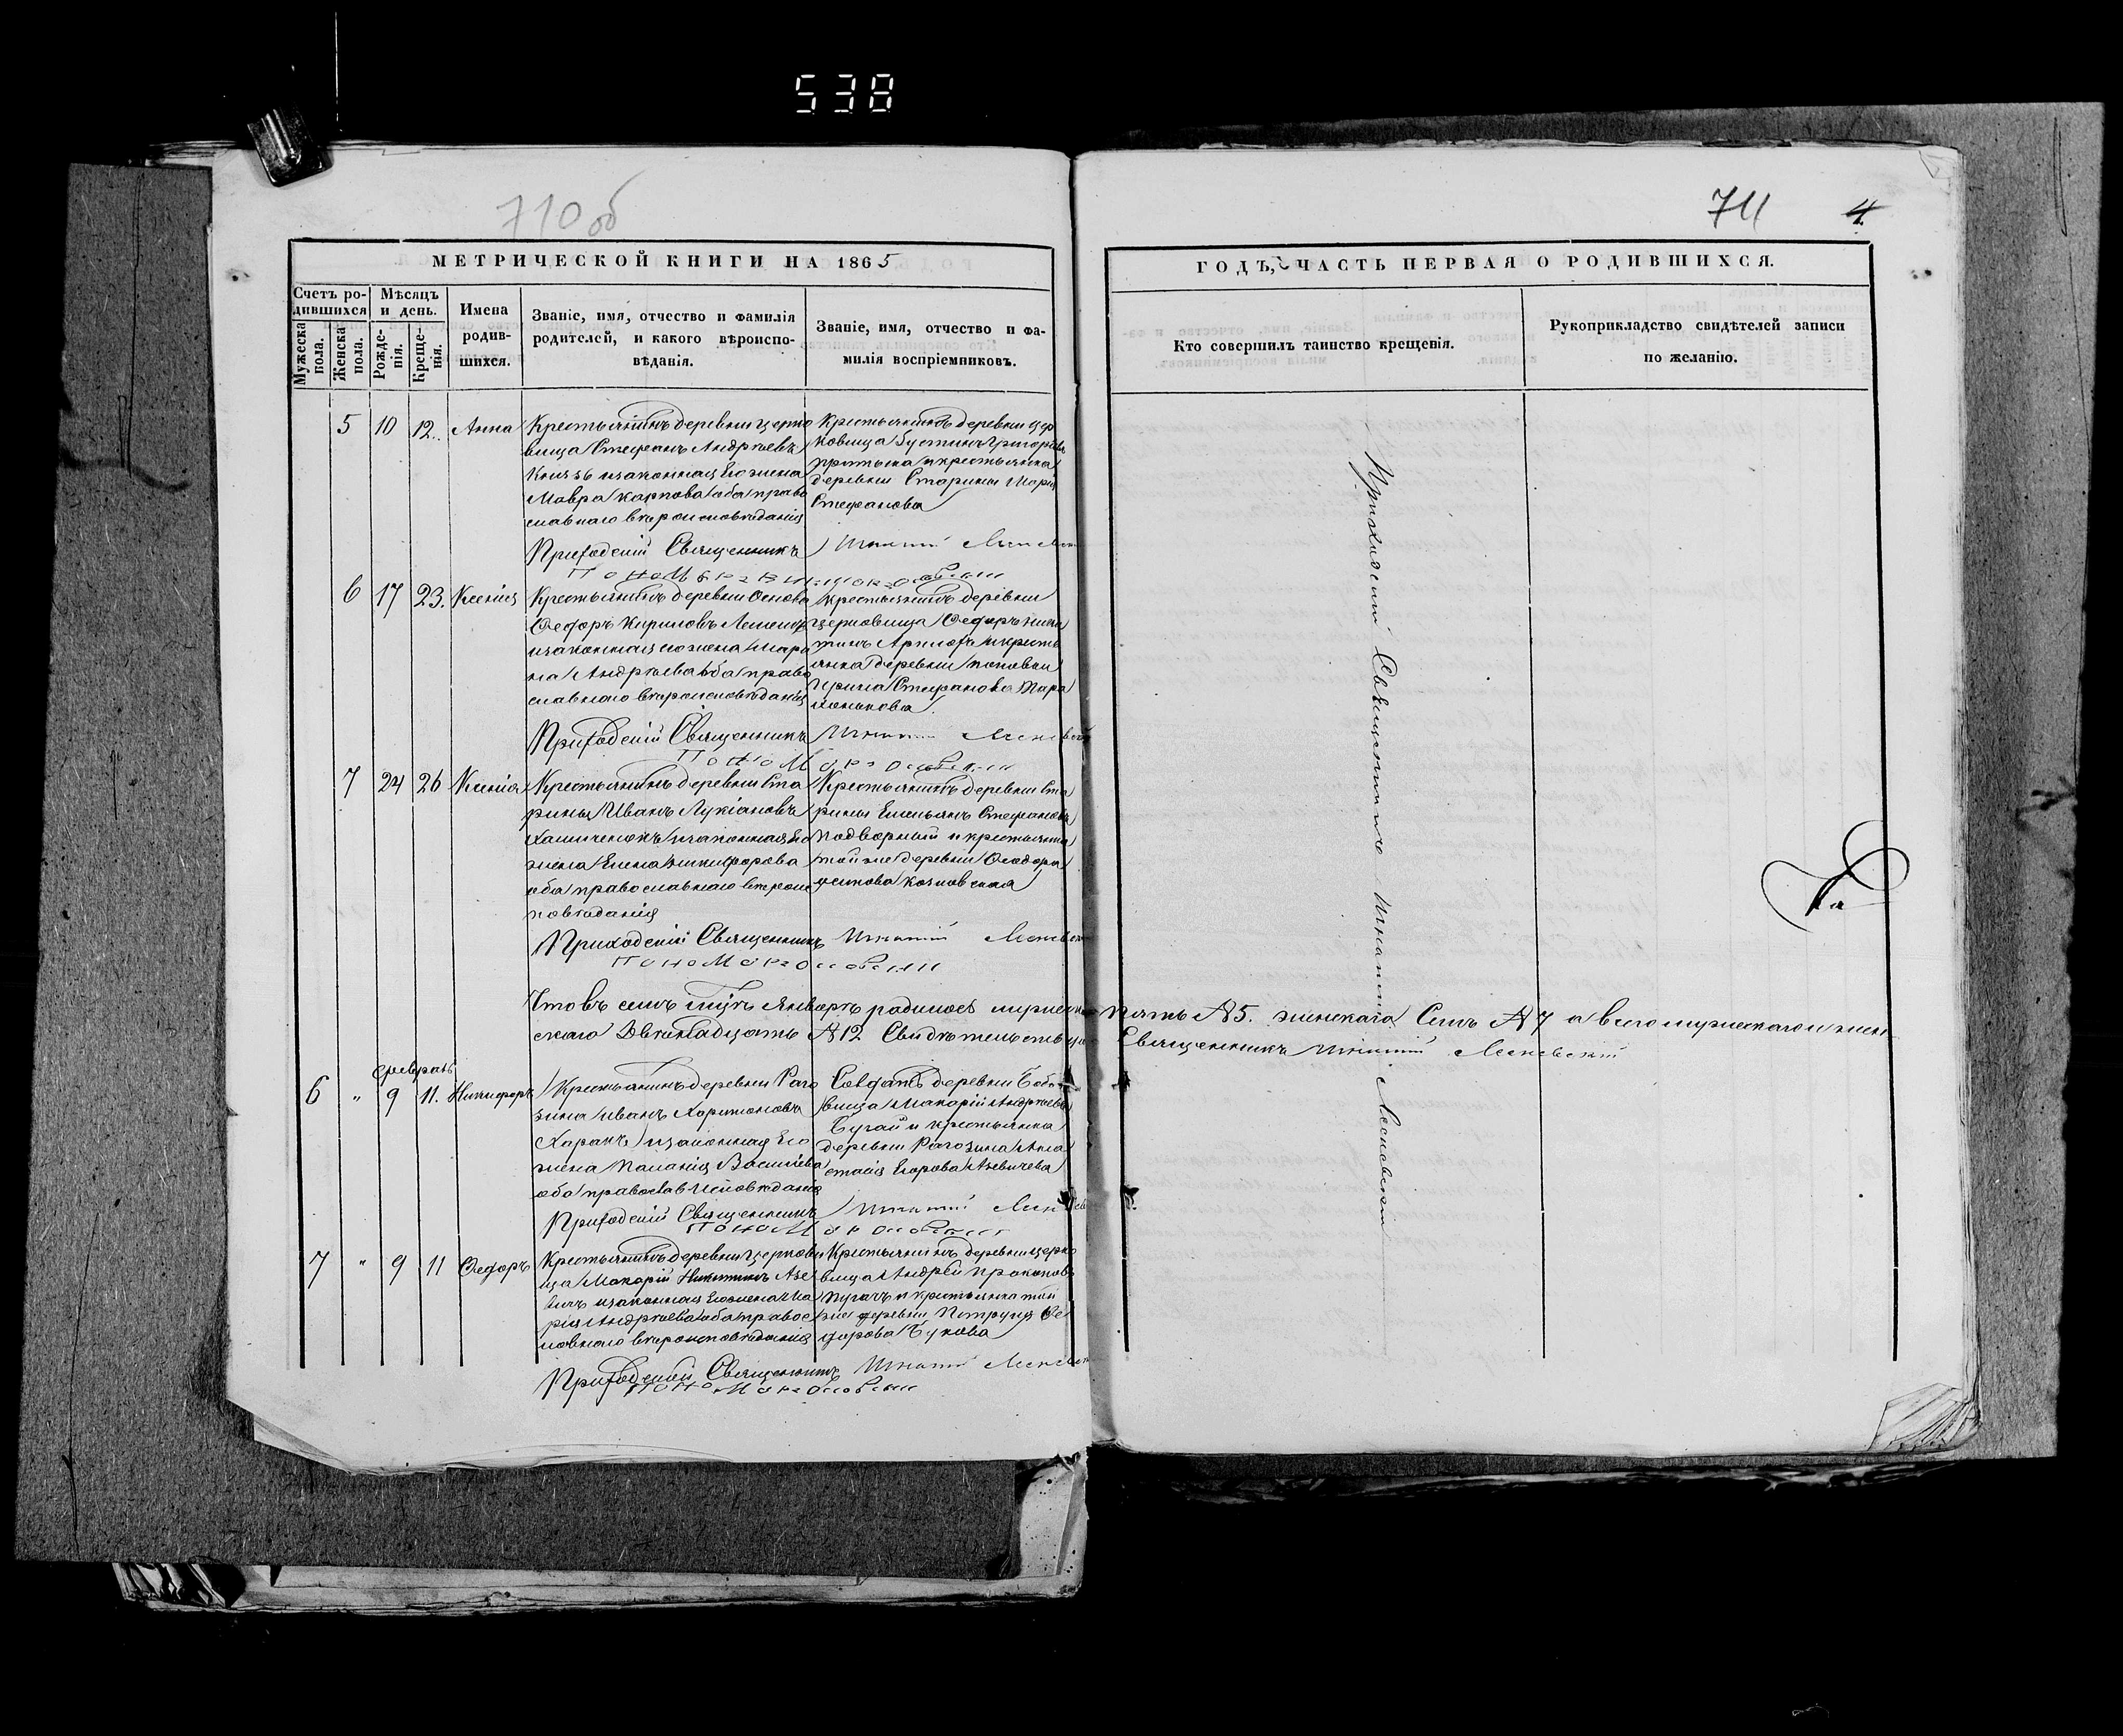 538
710 об
711 4
МЕТРИЧЕСКОЙ КНИГИ НА 1865
ГОДЪ, ЧАСТЬ ПЕРВАЯ О РОДИВШИХСЯ.
Счетъ ро-
дившихся
Мужеска
пола.
Женска
пола.
Мѣсяцъ
и день.
Рожде-
нія.
Креще-
нія.
Имена
родив-
шихся.
Званіе, имя, отчество и фамилія
родителей, и какого вѣроиспо-
вѣданія.
Званіе, имя, отчество и фа-
милія воспріемниковъ.
Кто совершилъ таинство крещенія.
Рукоприкладство свидѣтелей записи
по желанію.
5 10 12. Анна
Крестьянинъ деревни Церко
вища Стефанъ Андреевъ
Князь и законная Его жена
Мавра Карпова оба право
славнаго вѣроисповѣданія
Крестьянинъ деревни Цер
ковища Григорьевъ
и крестьянка
деревни Старины Марія
Стефанова
Приходскій Священникъ Игнатій
Пономарь
6 17 23. Ксенія
Крестьянинъ деревни Основа
Ѳедоръ Кириловъ
и законная его жена Мари
на Андреева оба право
славнаго вѣроисповѣданія
Крестьянинъ деревни
Церковища Ѳедоръ
и кресть
янка деревни
Стефанова
Приходскій Священникъ Игнатій
Пономарь
7 24 26 Ксенія
Крестьянинъ деревни Ста
рины Иванъ Лукіановъ
и законная Его
жена Елена Никифорова
оба православнаго вѣроис
повѣданія
Крестьянинъ деревни Ста
рины Емельянъ Стефановъ
Подворный и крестьянка
той же деревни Ѳеодора
Осипова Козловская
Приходскій Священникъ Игнатій
Пономарь
Что въ семъ м͠цѣ Январѣ родилось мужес
каго пять № 5. женскаго Семь № 7 а всего мужескаго и жен
скаго Двѣнадцать № 12 Свидѣтельствую
Священникъ Игнатій
Февраль
6 " 9 11. Никифоръ
Крестьянинъ деревни Раго
зина Иванъ Харитоновъ
и законная Его
жена Паланія Василіева
оба православ исповѣданія
Солдатъ деревни Бобо
вища Макарій Андреевъ
Бугай и крестьянка
деревни Рагозина Ана
стасія Егорова Азевичева
Приходскій Священникъ Игнатій
Пономарь
7 " 9 11 Ѳедоръ
Крестьянинъ деревни Церкови
ща Макарій Никитинъ Азе
вичъ и законная Его жена Ма
рія Андреева оба правос
лавнаго вѣроисповѣданія
Крестьянинъ деревни Церко
вища Андрей Прокоповъ
Пугачъ и крестьянка той
же деревни Ѳе
дорова Букова
Приходскій Священникъ Игнатій
Пономарь
Приходскій Священникъ Игнатій